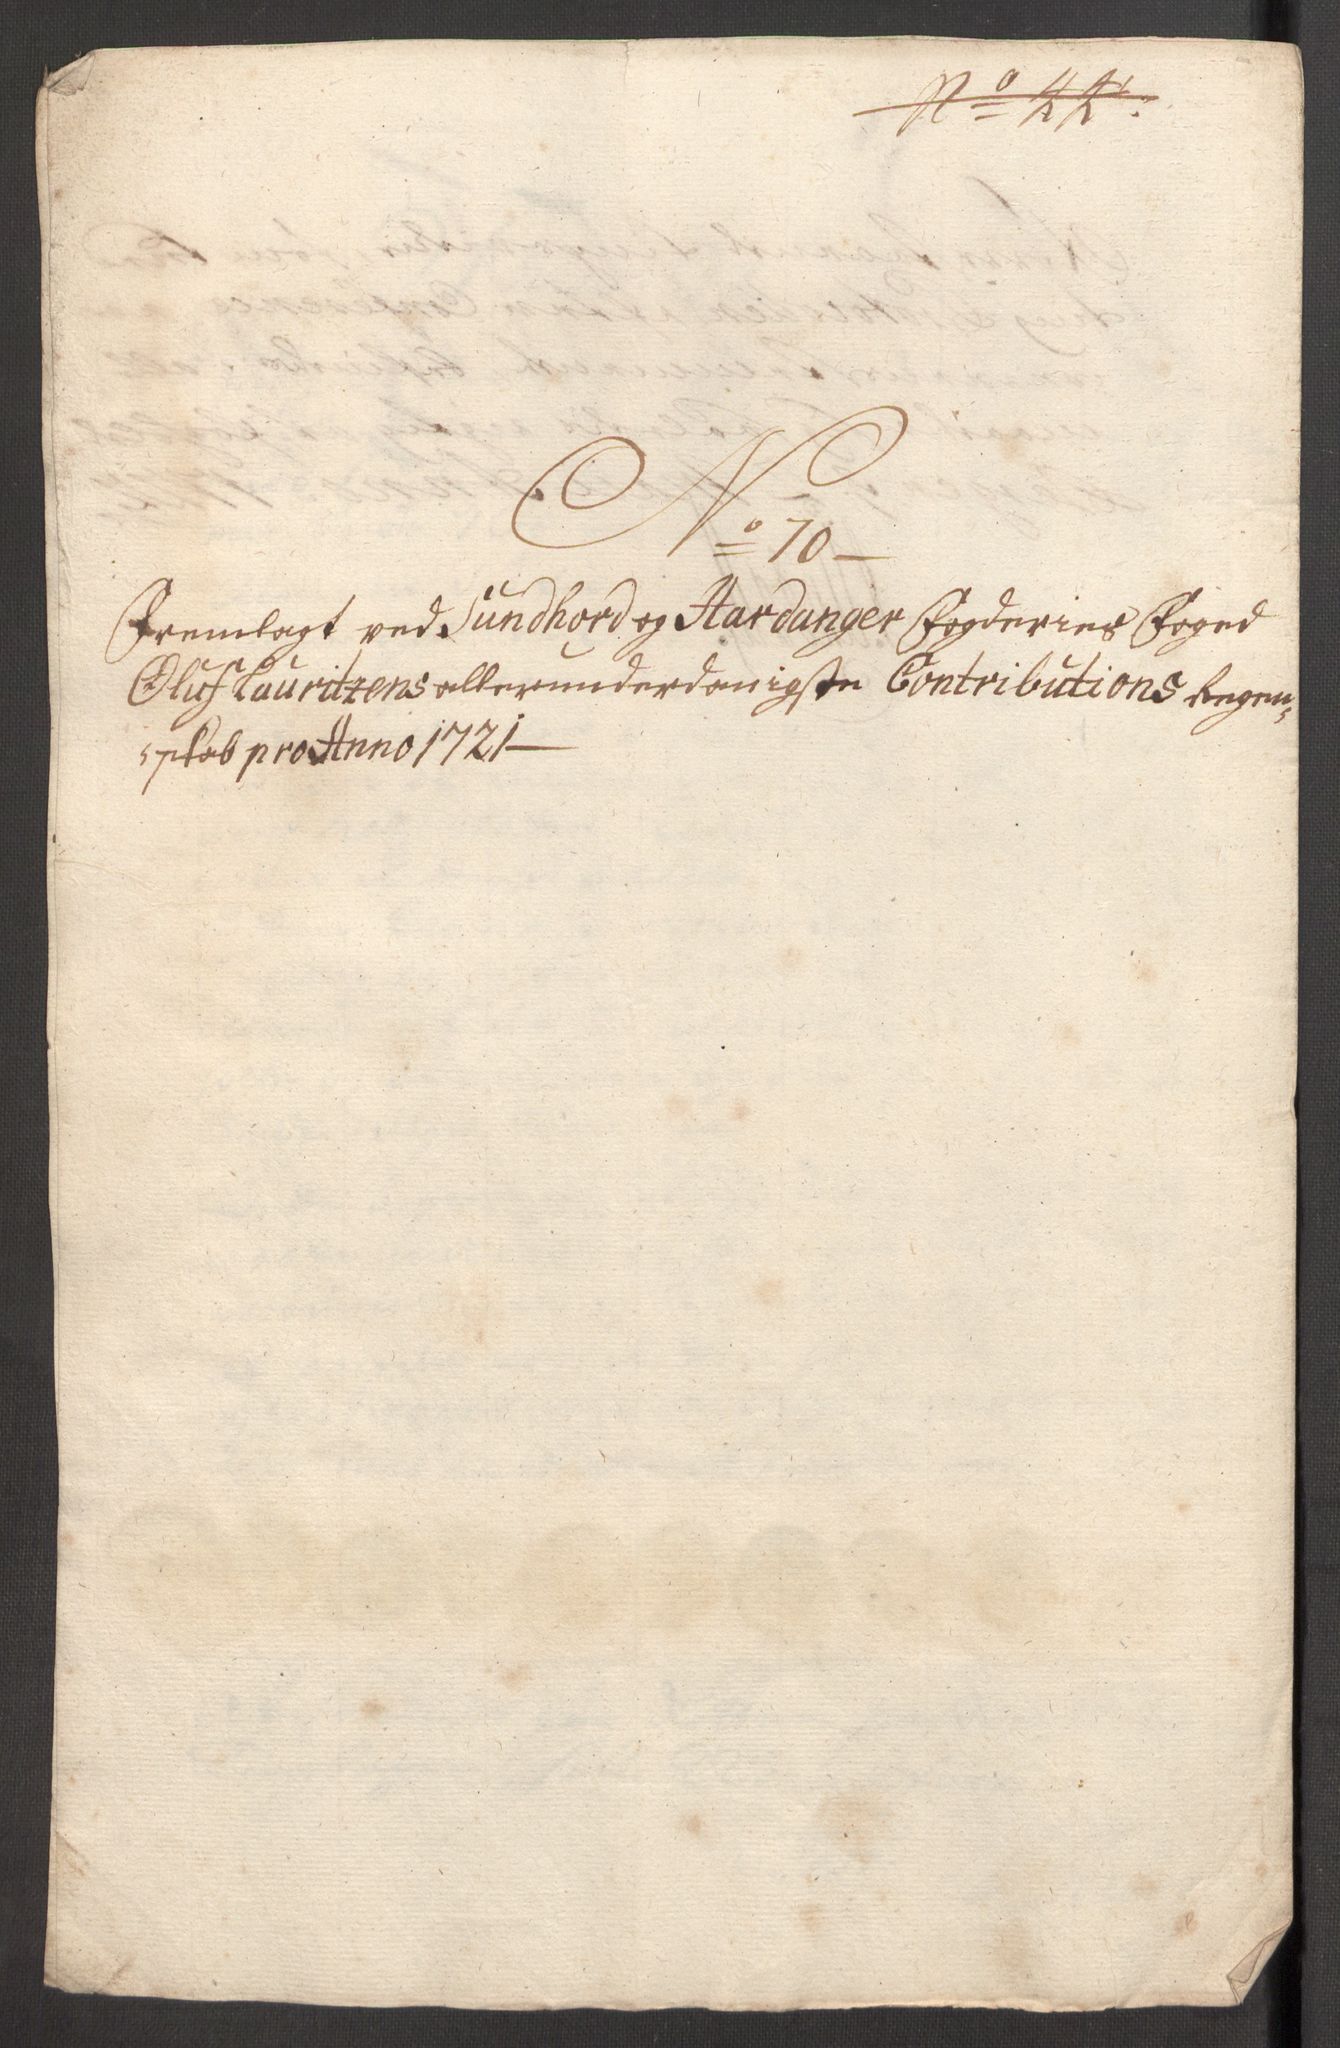 No 44:
No 70
Fremlagt ved Sundhord og Hardanger Fogderies Foged
Oluf Lauritzens allerunderdanigste Contributions Regen-
skab pro Anno 1721